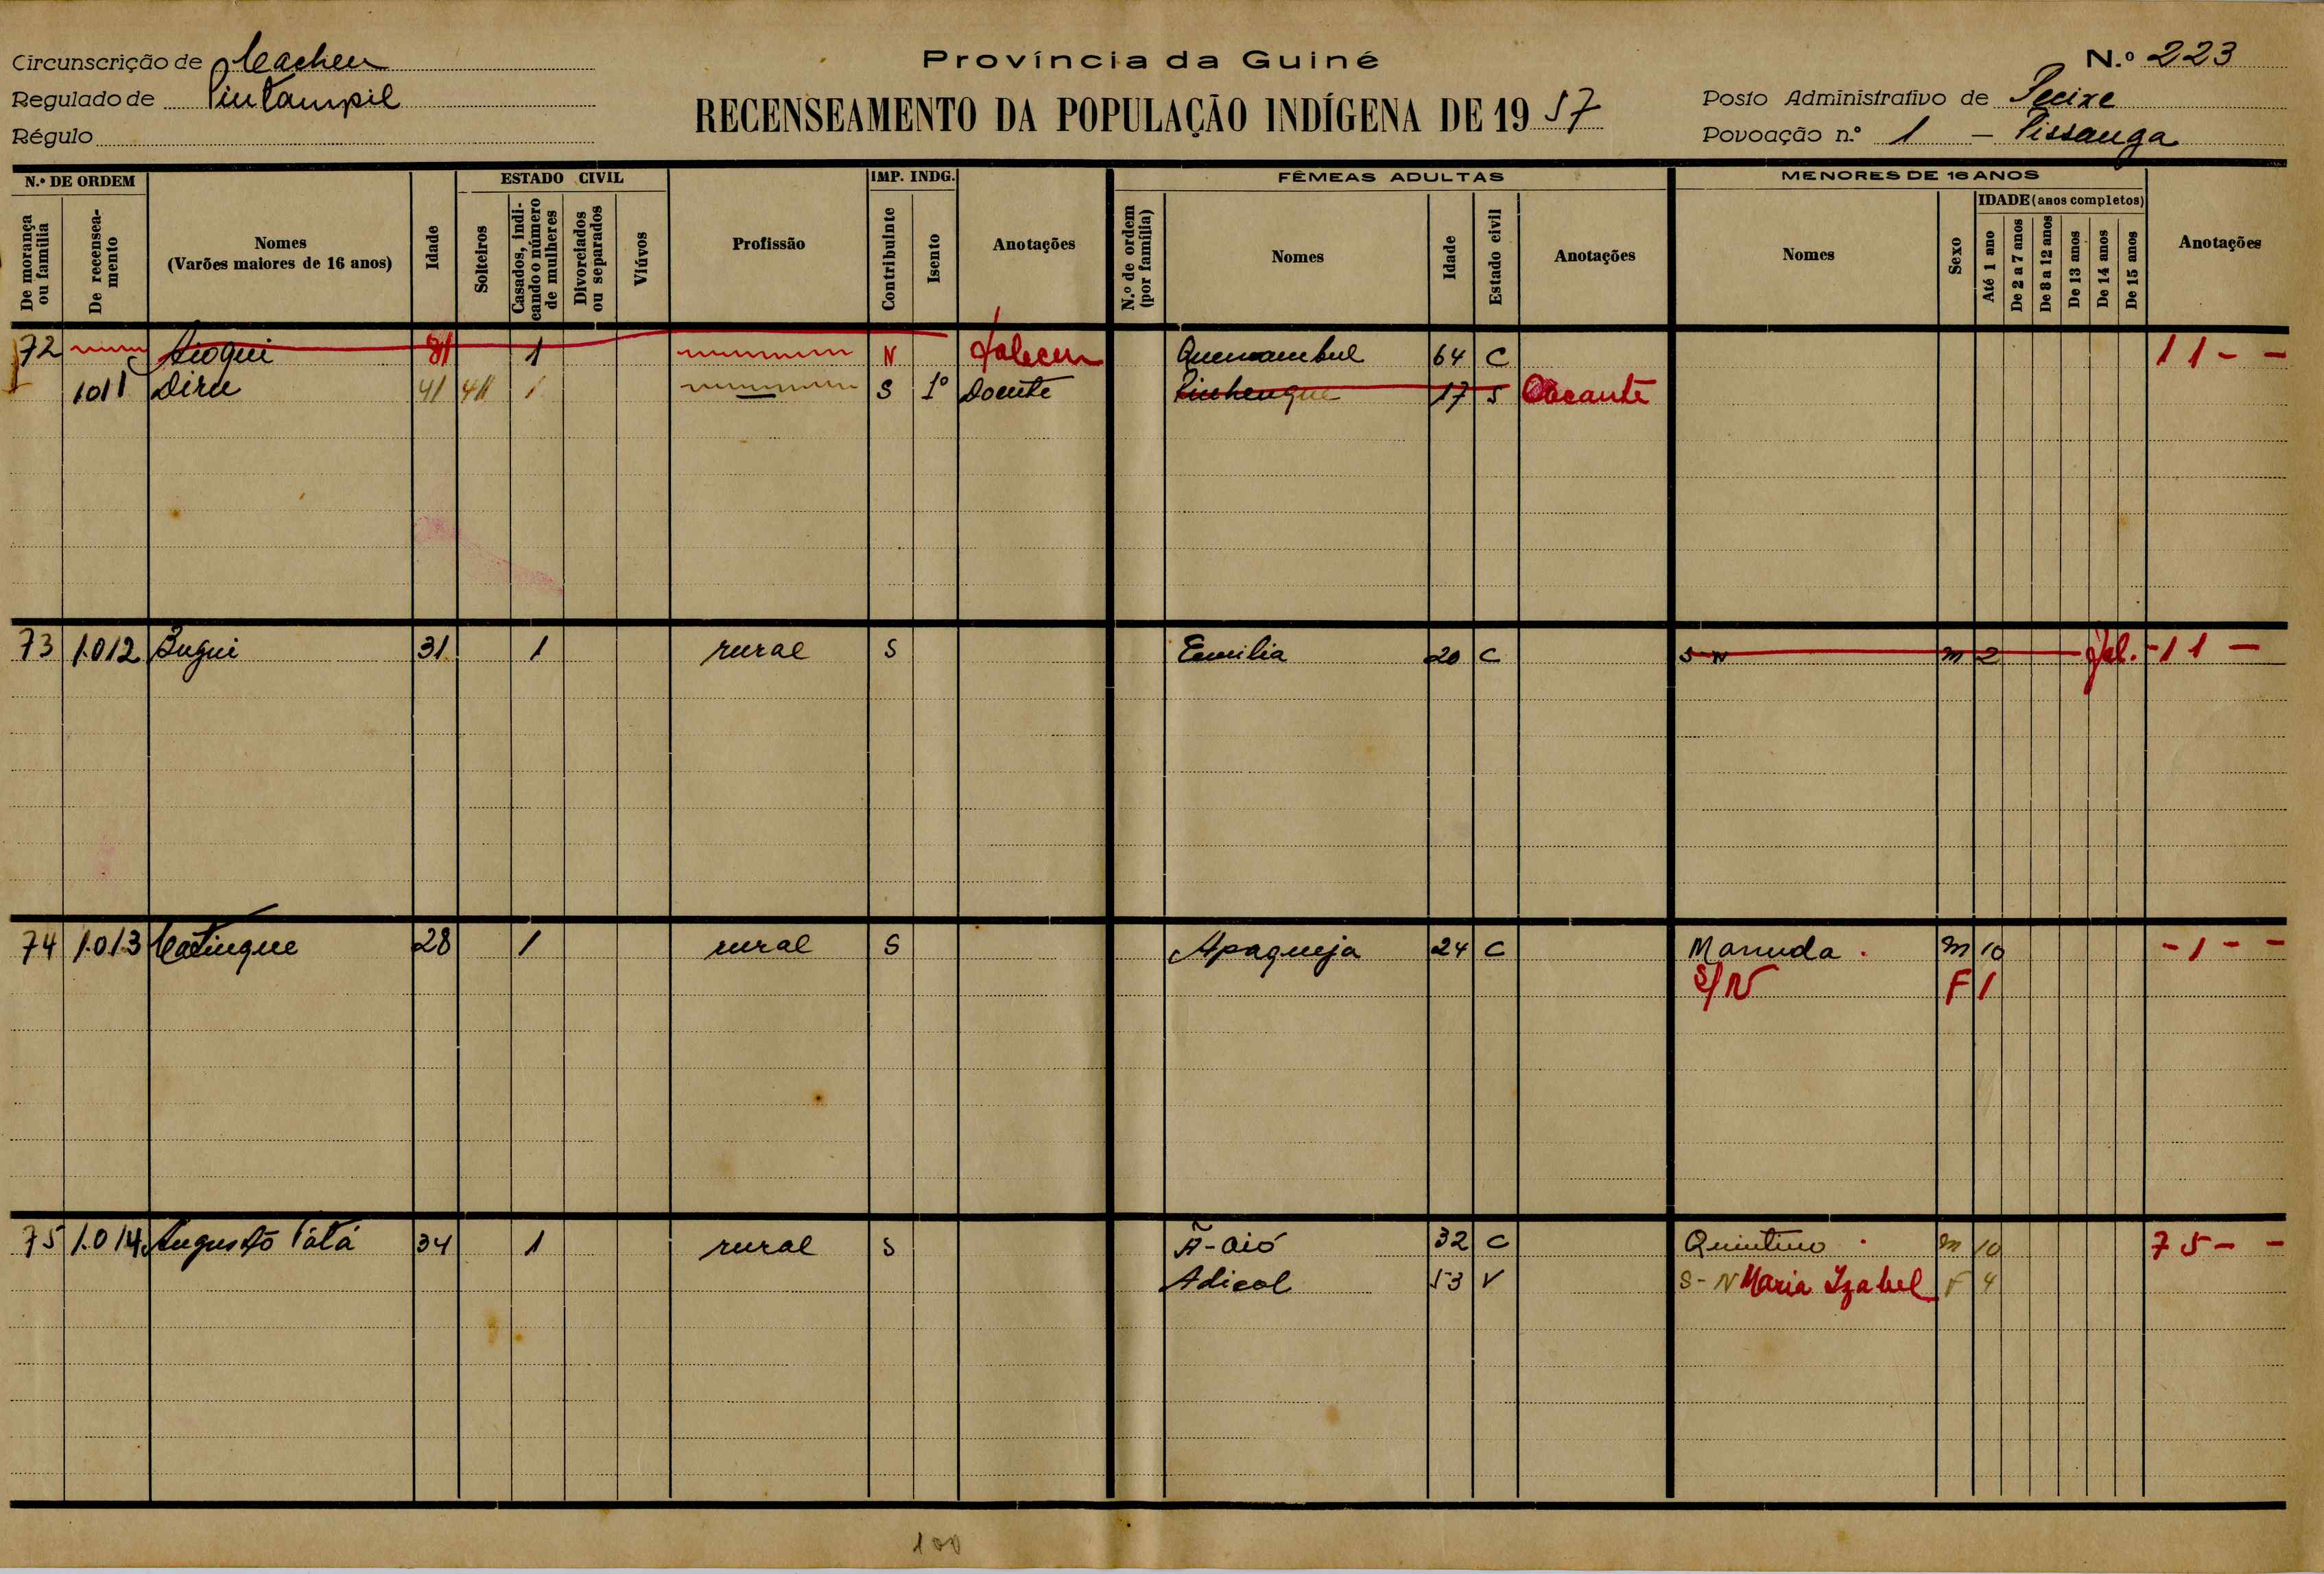 Circunscrição de Cacheu
Província da Guiné
N.º 223
Regulado de Pintampil
RECENSEAMENTO DA POPULAÇÃO INDÍGENA DE 1957
Posto Administrativo de Pecixe
Régulo
Povoação n.º 1 - Pissanga
N.º DE ORDEM
ESTADO CIVIL
IMP. INDG.
FÊMEAS ADULTAS
MENORES DE 16 ANOS
De morança ou família
De recenseamento
Nomes
(Varões maiores de 16 anos)
Idade
Solteiros
Casados, indicando o número de mulheres
Divorciados ou separados
Viúvos
Profissão
Contribuinte
Isento
Anotações
N.º de ordem (por família)
Nomes
Idade
Estado civil
Anotações
Nomes
Sexo
IDADE (anos completos)
Até 1 ano
De 2 a 7 anos
De 8 a 12 anos
De 13 anos
De 14 anos
De 15 anos
Anotações
72 81 1 N Faleceu 64 C 11 - -
1011 Diru 41 1 S 1º Doente 17 S
73 1.012 Bugui 31 1 rural S Emilia 20 C S-N m 2 Fal. - 11 -
74 1.013 Catinque 28 1 rural S Apaqueja 24 C Manuda m 10 - 1 - -
S/N F 1
75 1.014 Augusto Tátá 34 1 rural S Ã-Aió 32 C Quintino m 10 75 - -
Adicol 53 V S-N Maria Izabel F 4
100